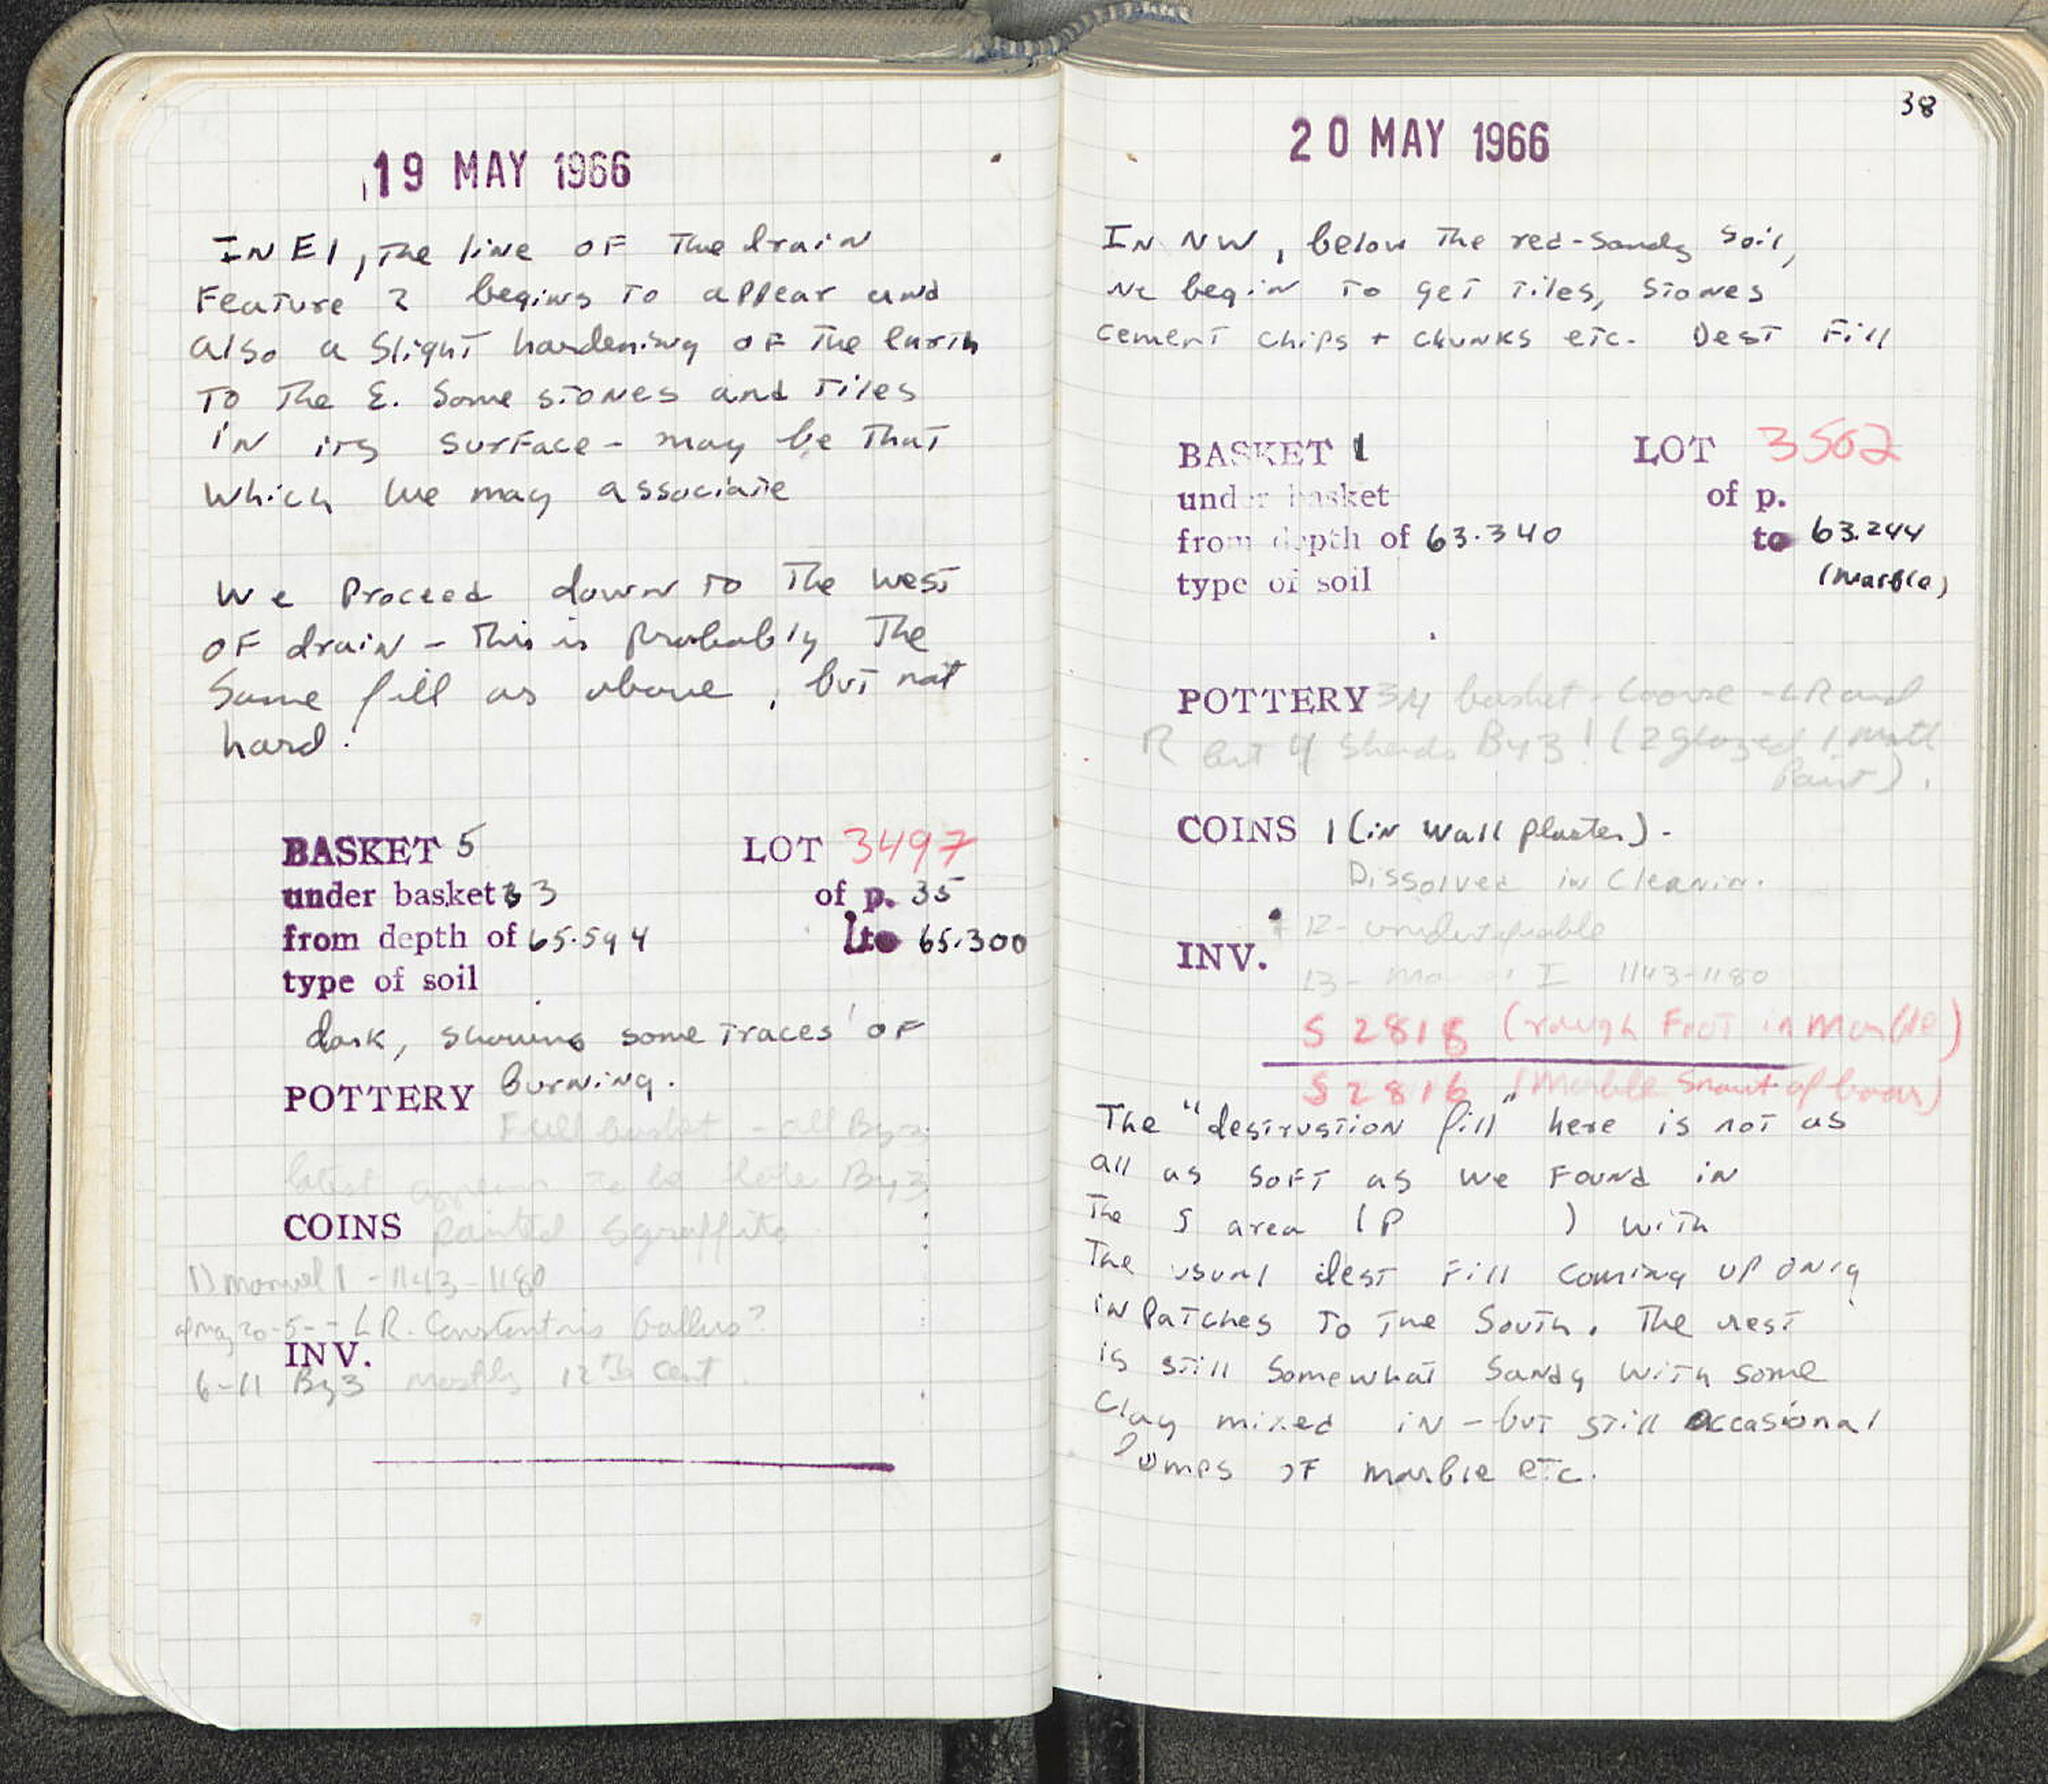 19 MAY 1966
IN E1, The line OF The drain
Feature 2 begins To appear and
also a slight hardening OF The Earth
TO The E. Some stones and Tiles
in its surface - may be That
which we may associate
We Proceed down TO The West
OF drain - This is probably The
Same fill as above, but not
hard.
BASKET 5 LOT 3497
under basket 3 of p. 35
from depth of 65.594 to 65.300
type of soil
dark, showing some traces OF
Burning.
POTTERY
Full basket - all Byz
latest appears to be late Byz
painted Sgraffito
COINS
1) Manuel I - 1143-1180
of May 20-5 - - LR. Constantius Gallus?
INV.
6-11 Byz mostly 12th cent.
38
20 MAY 1966
IN NW, below The red-sandy soil,
we begin To get Tiles, Stones
cement chips + chunks etc. Dest Fill
BASKET 1 LOT 3502
under basket of p.
from depth of 63.340 to 63.244
(marble)
type of soil
POTTERY 3/4 basket - Coarse - LR and
R but 4 sherds Byz! (2 glazed 1 Matt
Paint).
COINS 1 (in wall plaster) -
Dissolved in Cleanin.
12 -
INV.
13 - I 1143-1180
S 2818 (rough Foot in Marble)
S 2816 (Marble Snout of boar)
The "destrustion fill" here is not as
all as soft as we Found in
The S area (P ) with
The usual dest Fill coming up only
in Patches To The South. The rest
is still somewhat Sandy with some
Clay mixed in - but still occasional
lumps of marble etc.